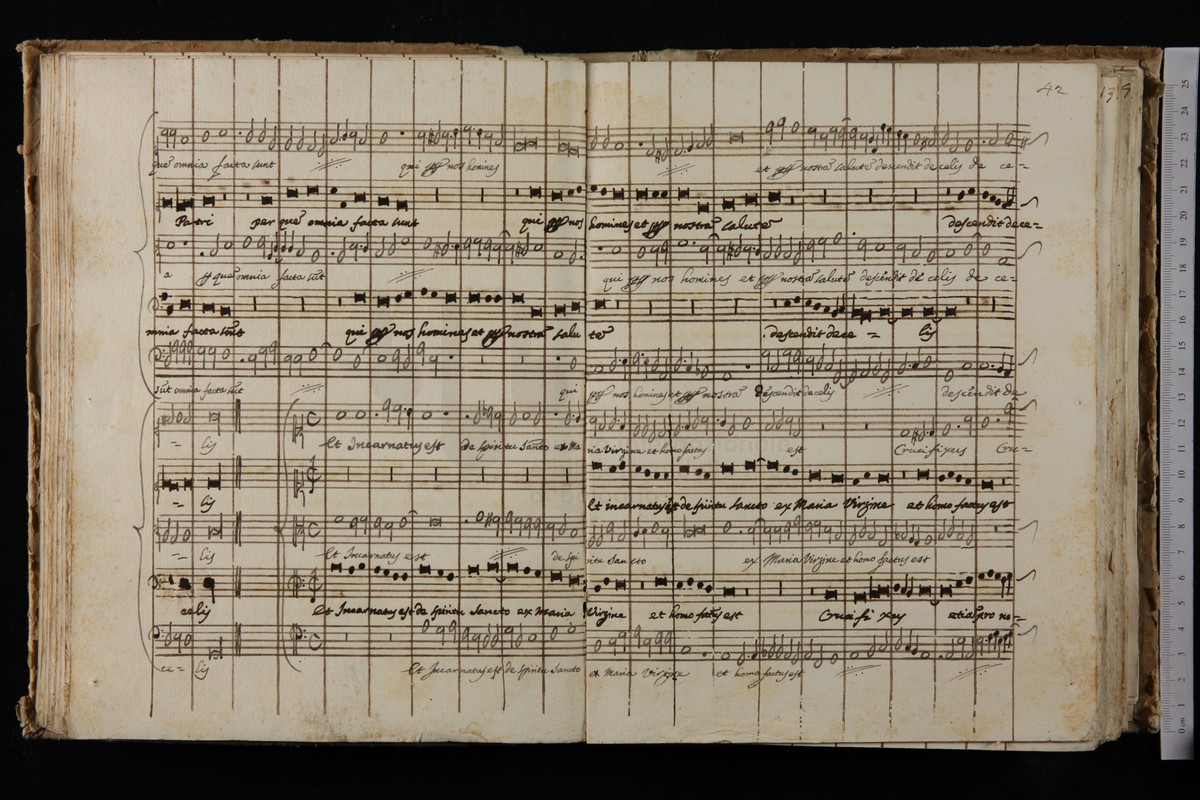 42 13.9
que omnia facta sunt qui nos homines et nostra salute descendit de celis de ce-
Patri per que omnia facta sunt qui nos homines et nostra salute descendit de ce-
a que omnia facta sut qui nos homines et nostra salute descendit de celis de ce-
mnia facta sut qui nos homines et nostra salu te descendit de ce - lis
sut omnia facta sut qui nos homines et nostra descendit de celis descendit de
- lis Et Incarnatus est de Spiritu Santo ex Ma ria Virgine et homo factus est Crucifixus Cru-
- lis Et incarnatus est de spiritu sancto ex Maria Virgine et homo factus est
- lis Et Incarnatus est de Spi ritu Sancto ex Maria Virgine et homo factus est
celis Et Incarnatus est de spiritu Sancto ex Maria Virgine et homo factus est Cruci fi xus etia pro no-
ce- lis Et Incarnatus est de Spiritu Sancto ex Maria Virgine et homo factus est